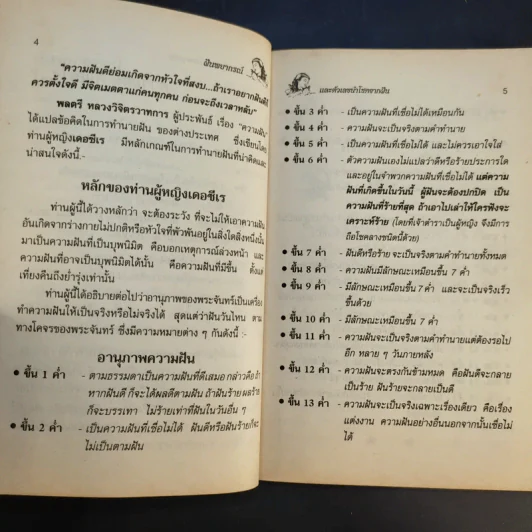 4
ฝันพยากรณ์
"ความฝันดีย่อมเกิดจากหัวใจที่สงบ...ถ้าเราอยากฝันดี
ควรตั้งใจดี มีจิตเมตตาแก่คนทุกคน ก่อนจะถึงเวลาหลับ"
พลตรี หลวงวิจิตรวาทการ ผู้ประพันธ์ เรื่อง "ความฝัน"
ได้แปลข้อคิดในการทำนายฝัน ของต่างประเทศ ซึ่งเขียนโดย
ท่านผู้หญิงเดอซีเร มีหลักเกณฑ์ในการทำนายฝันที่น่าคิดและ
น่าสนใจดังนี้.-
หลักของท่านผู้หญิงเดอซีเร
ท่านผู้นี้ได้วางหลักว่า จะต้องระวัง ที่จะไม่ให้เอาความฝัน
อันเกิดจากร่างกายไม่ปกติหรือหัวใจที่พัวพันอยู่ในสิ่งใดสิ่งหนึ่งนั้น
มาเป็นความฝันที่เป็นบุพนิมิต คือบอกเหตุการณ์ล่วงหน้า และ
ความฝันที่อาจเป็นบุพนิมิตได้นั้น คือความฝันที่มีขึ้น ตั้งแต่
เที่ยงคืนถึงย่ำรุ่งเท่านั้น
ท่านผู้นี้ได้อธิบายต่อไปว่าอานุภาพของพระจันทร์เป็นเครื่อง
ทำความฝันให้เป็นจริงหรือไม่จริงได้ สุดแต่ว่าฝันวันไหน ตาม
ทางโคจรของพระจันทร์ ซึ่งมีความหมายต่าง ๆ กันดังนี้ :-
อานุภาพความฝัน
• ขึ้น 1 ค่ำ - ตามธรรมดาเป็นความฝันที่ดีเสมอ กล่าวคือ ถ้า
หากฝันดี ก็จะได้ผลดีตามฝัน ถ้าฝันร้าย ผลร้าย
ก็จะบรรเทา ไม่ร้ายเท่าที่ฝันในวันอื่น ๆ
• ขึ้น 2 ค่ำ - เป็นความฝันที่เชื่อไม่ได้ ฝันดีหรือฝันร้ายก็จะ
ไม่เป็นตามฝัน
และตัวเลขนำโชคจากฝัน
5
• ขึ้น 3 ค่ำ - เป็นความฝันที่เชื่อไม่ได้เหมือนกัน
• ขึ้น 4 ค่ำ - ความฝันจะเป็นจริงตามคำทำนาย
• ขึ้น 5 ค่ำ - เป็นความฝันที่เชื่อไม่ได้ และไม่ควรเอาใจใส่
• ขึ้น 6 ค่ำ - ตัวความฝันเองไม่แปลว่าดีหรือร้ายประการใด
และอยู่ในจำพวกความฝันที่เชื่อไม่ได้ แต่ความ
ฝันที่เกิดขึ้นในวันนี้ ผู้ฝันจะต้องปกปิด เป็น
ความฝันที่ร้ายที่สุด ถ้าเอาไปเล่าให้ใครฟังจะ
เคราะห์ร้าย (โดยที่เจ้าตำราเป็นผู้หญิง จึงมีการ
ถือโชคลางชนิดนี้ด้วย)
• ขึ้น 7 ค่ำ - ฝันดีหรือร้าย จะเป็นจริงตามคำทำนายทั้งหมด
• ขึ้น 8 ค่ำ - ความฝันมีลักษณะเหมือนขึ้น 7 ค่ำ
• ขึ้น 9 ค่ำ - มีลักษณะเหมือนขึ้น 7 ค่ำ และจะเป็นจริงเร็ว
ขึ้นด้วย
• ขึ้น 10 ค่ำ - มีลักษณะเหมือนขึ้น 7 ค่ำ
• ขึ้น 11 ค่ำ - ความฝันจะเป็นจริงตามคำทำนายแต่ต้องรอไป
อีก หลาย ๆ วันภายหลัง
• ขึ้น 12 ค่ำ - ความฝันจะตรงกันข้ามหมด คือฝันดีจะกลาย
เป็นร้าย ฝันร้ายจะกลายเป็นดี
• ขึ้น 13 ค่ำ - ความฝันจะเป็นจริงเฉพาะเรื่องเดียว คือเรื่อง
แต่งงาน ความฝันอย่างอื่นนอกจากนั้นเชื่อไม่
ได้